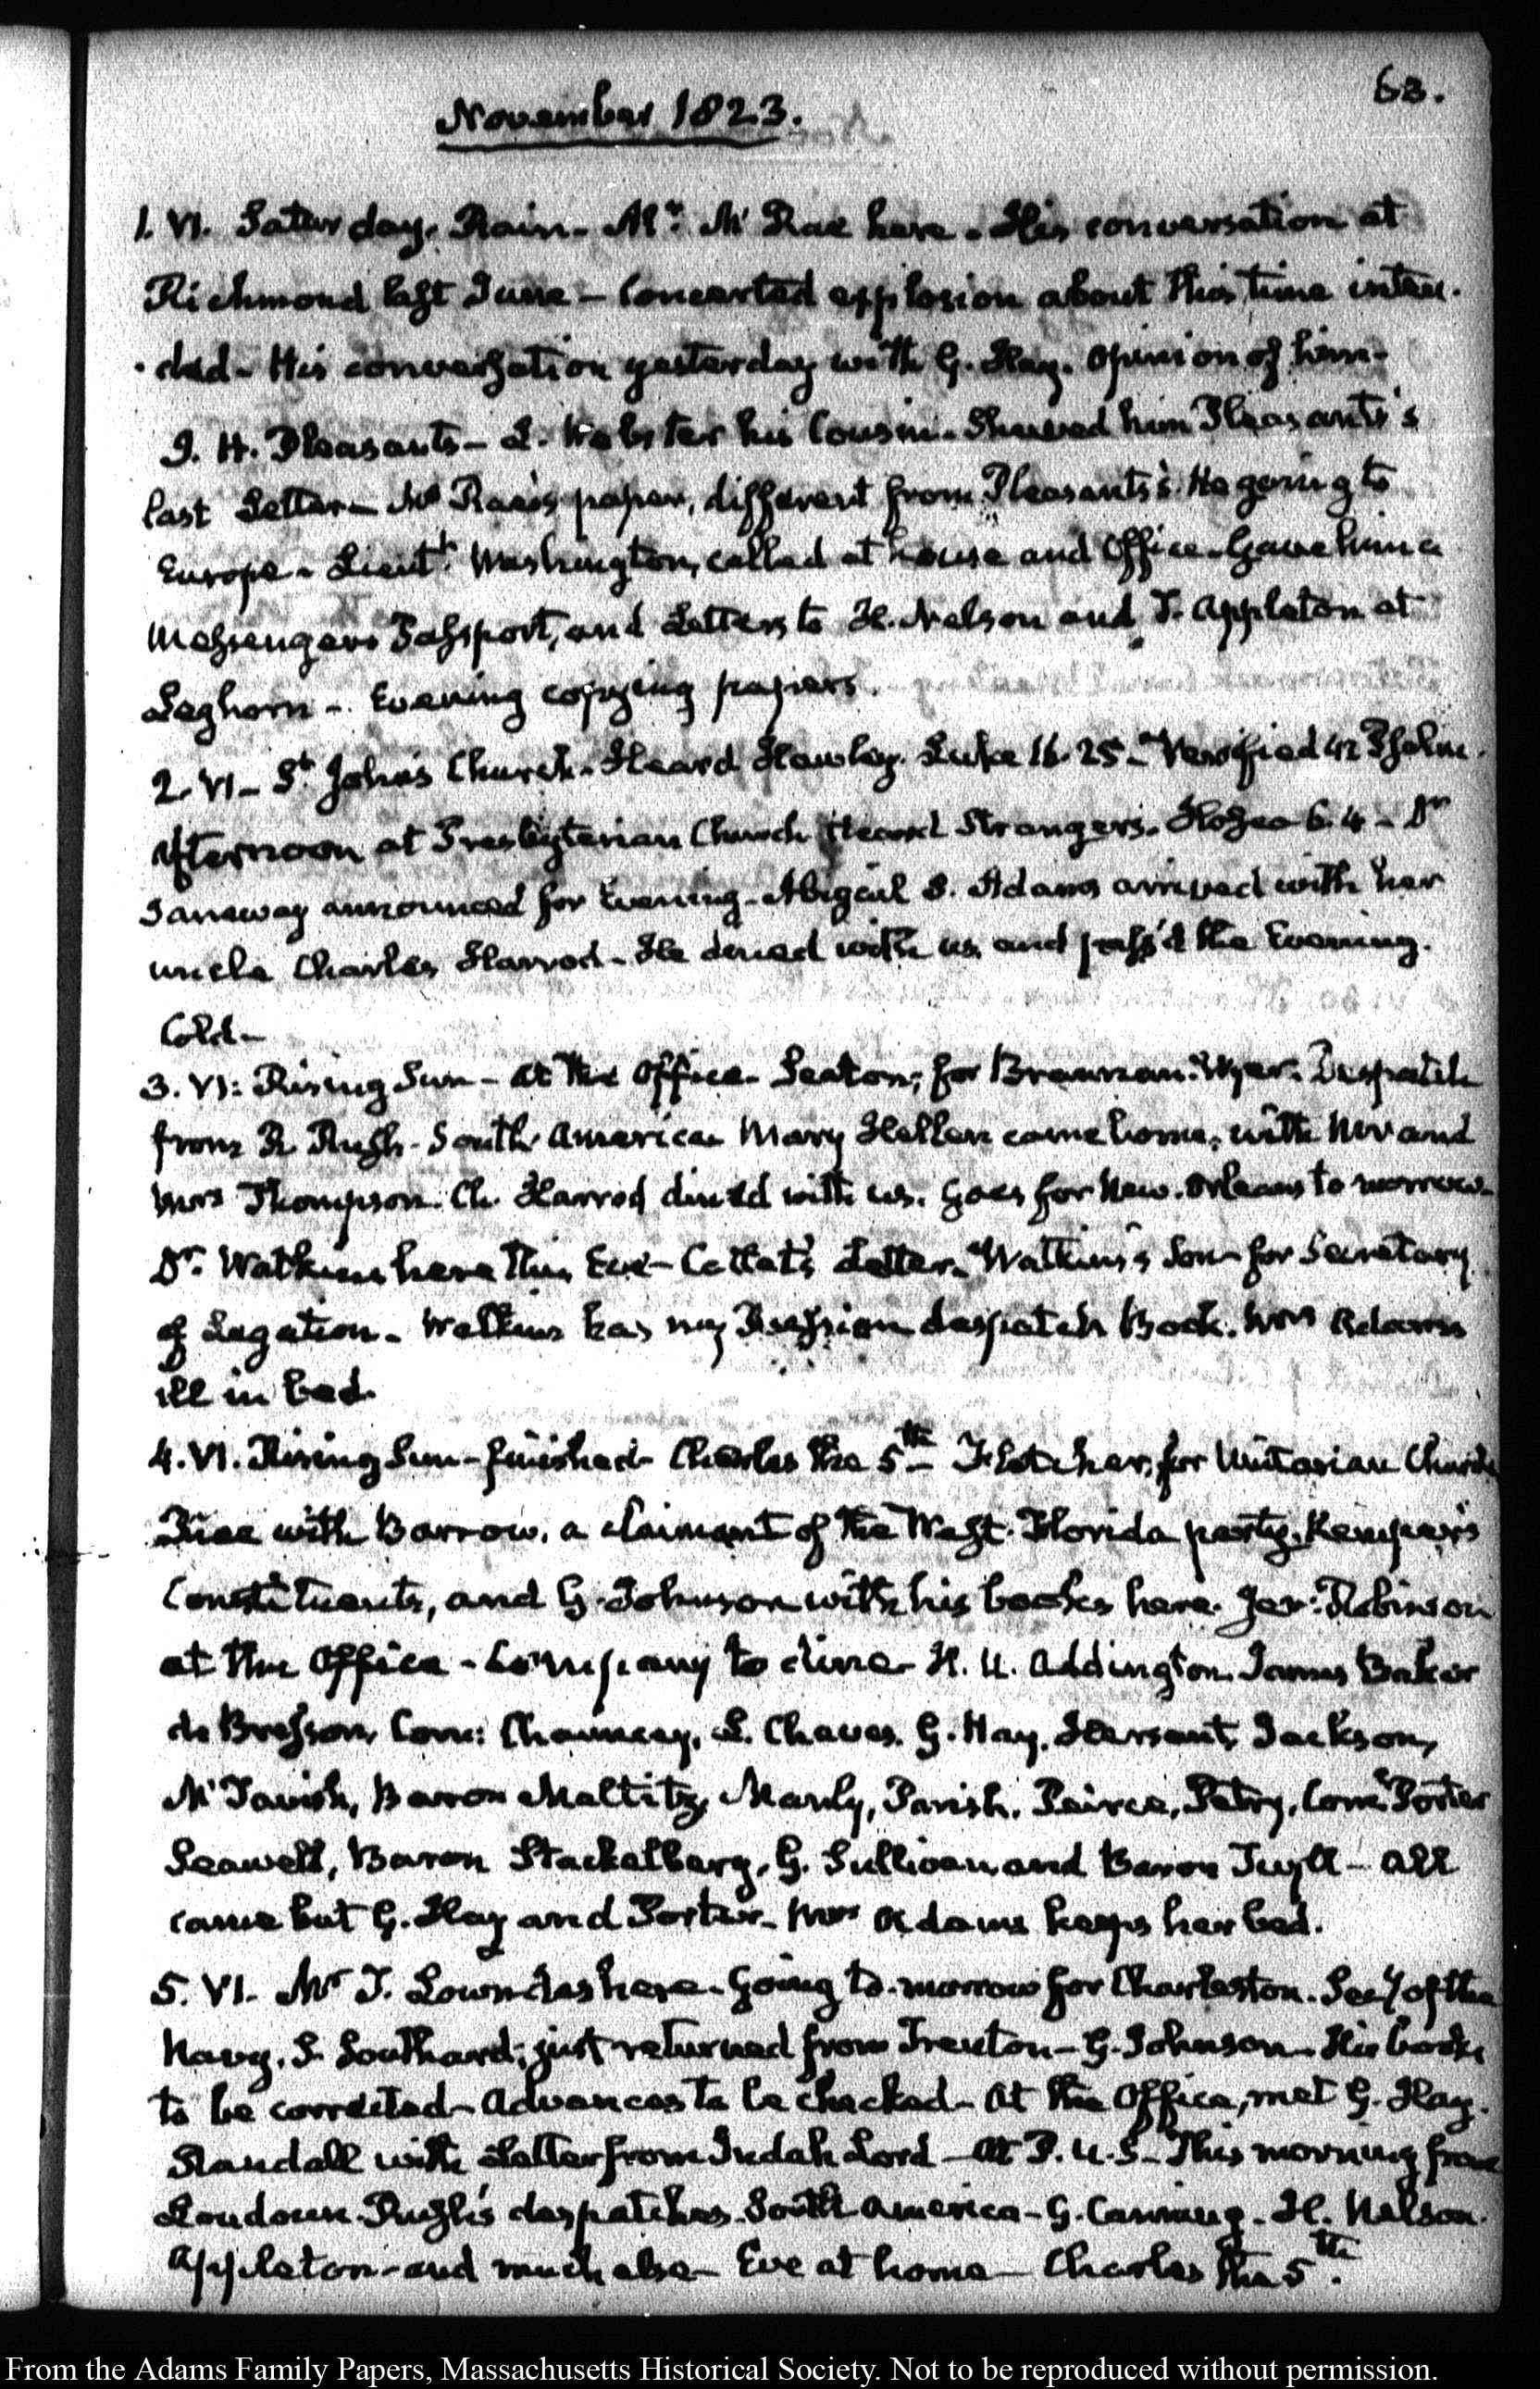 63.
November 1823.
1. VI. Saturday. Rain. Mr. Mc Rae here. His conversation at
Richmond last June — Concerted explosion about this time inten-
-ded — His conversation yesterday with G. Hay. Opinion of him —
J. H. Pleasants — L. Webster his Cousin. Shewed him Pleasants's
last Letter — Mc Rae's paper, different from Pleasants's. He going to
Europe. Lieutt. Washington, called at house and Office. Gave him a
Messengers Passport, and Letters to H. Nelson and T. Appleton at
Leghorn — Evening copying papers.
2. VI. St. John's Church. Heard Hawley. Luke 16. 25. Versified 42 Psalm.
Afternoon at Presbyterian Church Heard Strangers. Hosea 6. 4 — Dr
Janeway announced for Evening. Abigail S. Adams arrived with her
uncle Charles Harrod — He dined with us, and pass'd the Evening.
Cold —
3. VI: Rising Sun — At the Office. Seaton, for Brannan. Wyer. Despatch
from R Rush. South America. Mary Hellen came home, with Mr and
Mrs Thompson. Ch. Harrod dined with us. Goes for New. Orleans to morrow.
Dr. Watkins here this Eve — Letter. Watkins's Son — for Secretary
of Legation. Watkins has my Russian despatch Book. Mrs Adams
ill in bed.
4. VI. Rising Sun — finished — Charles the 5th — Fletcher, for Unitarian Church
with Barrow, a claimant of the West-Florida party. Kemper's
Constituents, and G. Johnson with his books here. Jer: Robinson
at the Office — Company to dine — H. U. Addington. James Baker
de Bresson, Com: Chauncey, L. Chaves. G. Hay. Hersant, Jackson,
Mc Tavish, Baron Maltitz, Manly, Parish, Peirce, Petry, Come. Porter
Seawell, Baron Stackelberg, G. Sullivan and Baron Tuyll — All
came but G. Hay and Porter. Mrs Adams keeps her bed.
5. VI. Mr T. Lowndes here. Going to-morrow for Charleston. Secy of the
Navy, S. Southard; just returned from Trenton — G. Johnson. His books
to be corrected — Advances to be checked — At the Office, met G. Hay.
Randall with Letter from Judah Lord — At P. U. S — This morning from
Loudoun. Rush's despatches. South America — G. Canning. H. Nelson.
Appleton — and much else — Eve at home — Charles the 5th.
From the Adams Family Papers, Massachusetts Historical Society. Not to be reproduced without permission.